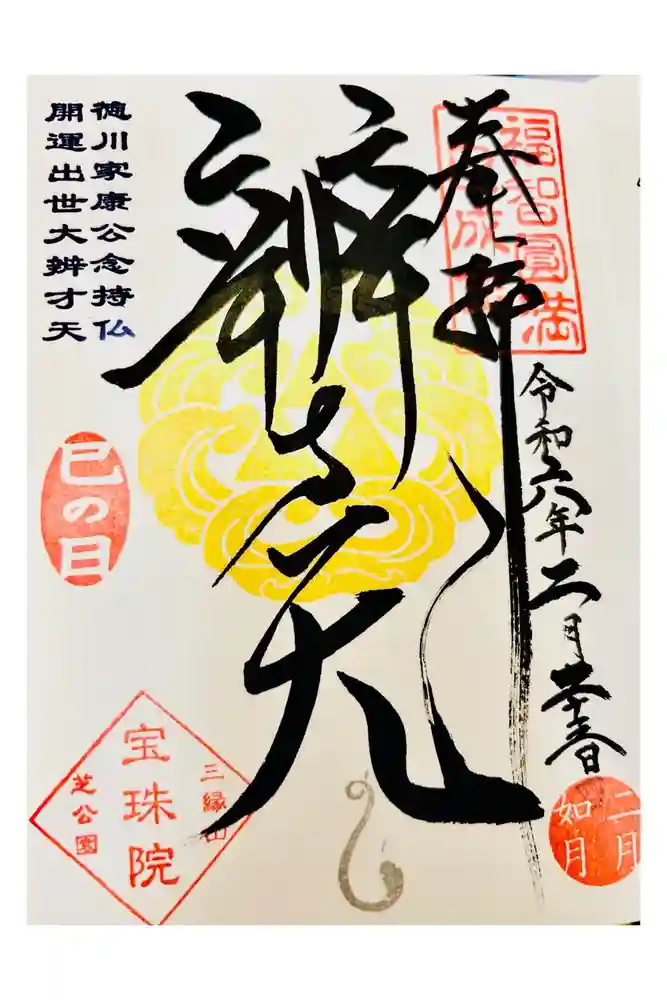 福智圓満
奉拝
令和六年二月
辨才天
徳川家康公念持仏
開運出世大辨才天
巳の日
二月
如月
三縁山
宝珠院
芝公園